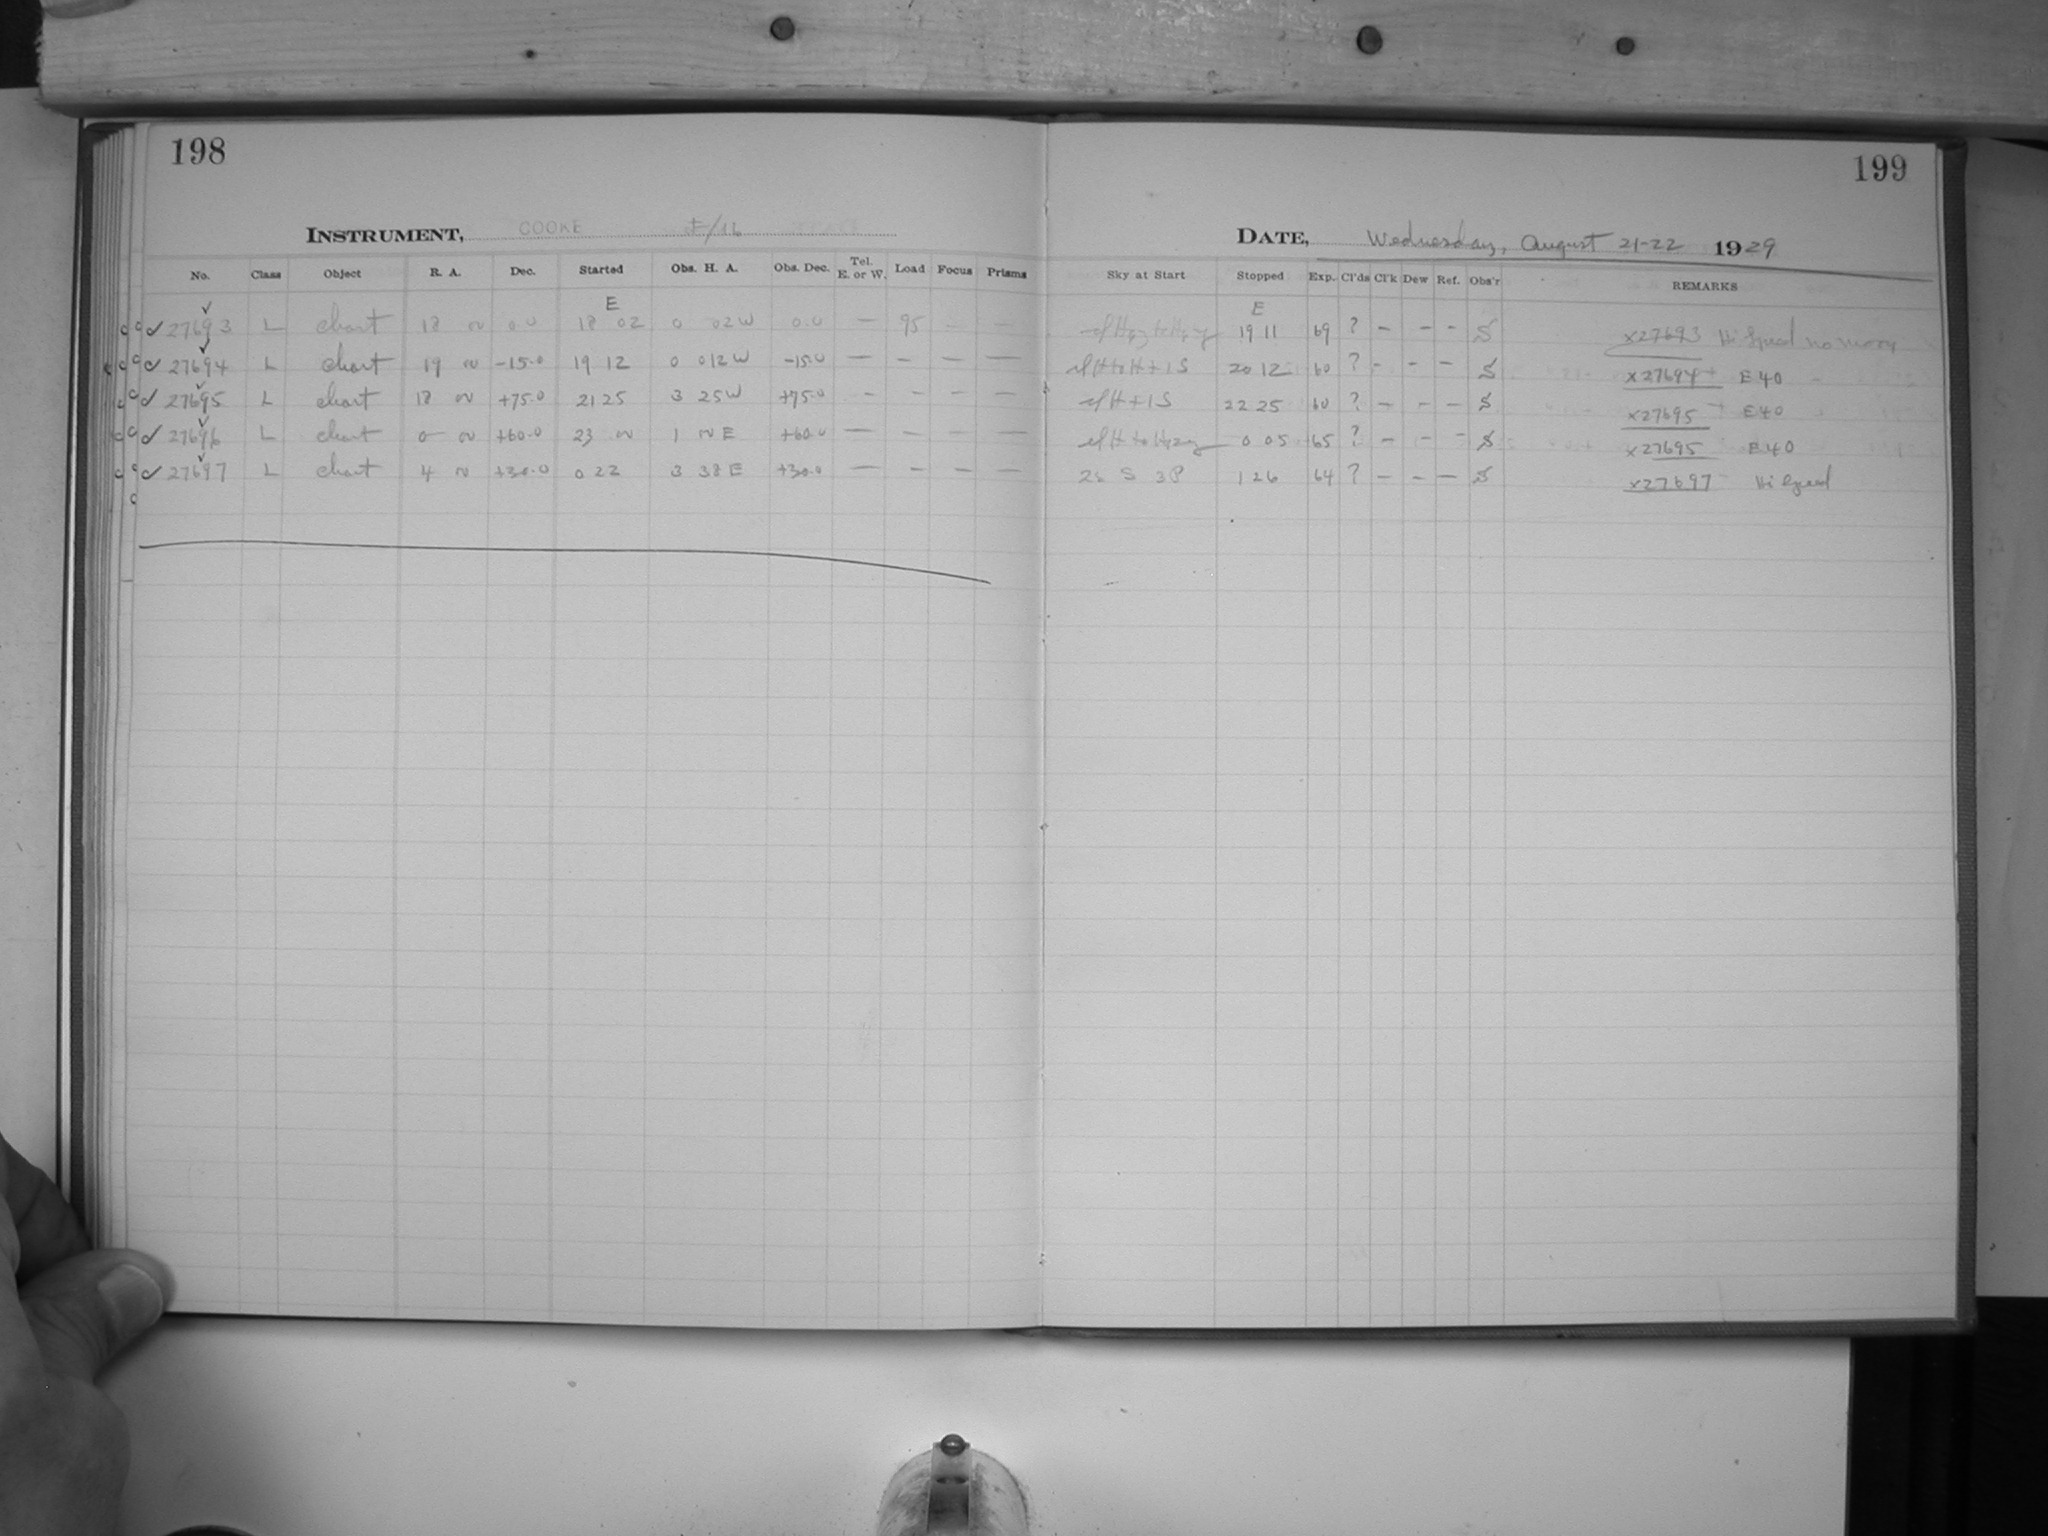 198
199
INSTRUMENT, COOKE F/16
DATE, Wednesday, August 21-22 1929
No. Class Object R. A. Dec. Started Obs. H. A. Obs. Dec. Tel. E. or W. Load Focus Prisms Sky at Start Stopped Exp. Cl'ds Cl'k Dew Ref. Obs'r REMARKS
E E
27693 L chart 18 00 0.0 18 02 0 02 W 0.0 — 95 — — 19 11 69 ? — — — S x27693 Hi Speed no more
27694 L chart 19 00 -15.0 19 12 0 012 W -15.0 — — — — H to H + 1 S 20 12 60 ? — — — S x27694 E 40
27695 L chart 18 00 +75.0 21 25 3 25 W +75.0 — — — — H + 1 S 22 25 60 ? — — — S x27695 E 40
27696 L chart 0 00 +60.0 23 00 1 00 E +60.0 — — — — 0 05 65 ? — — — S x27695 E 40
27697 L chart 4 00 +30.0 0 22 3 38 E +30.0 — — — — 2s S 3P 1 26 64 ? — — — S x27697 Hi Speed